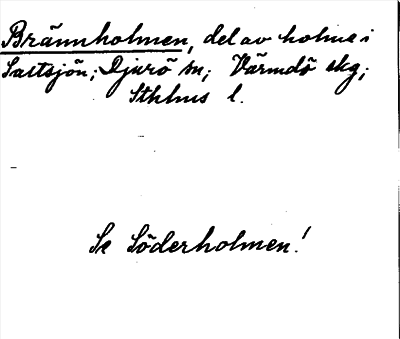 Brännholmen, del av holme i
Saltsjön; Djurö sn; Värmdö skg;
Sthlms l.
Se Söderholmen!